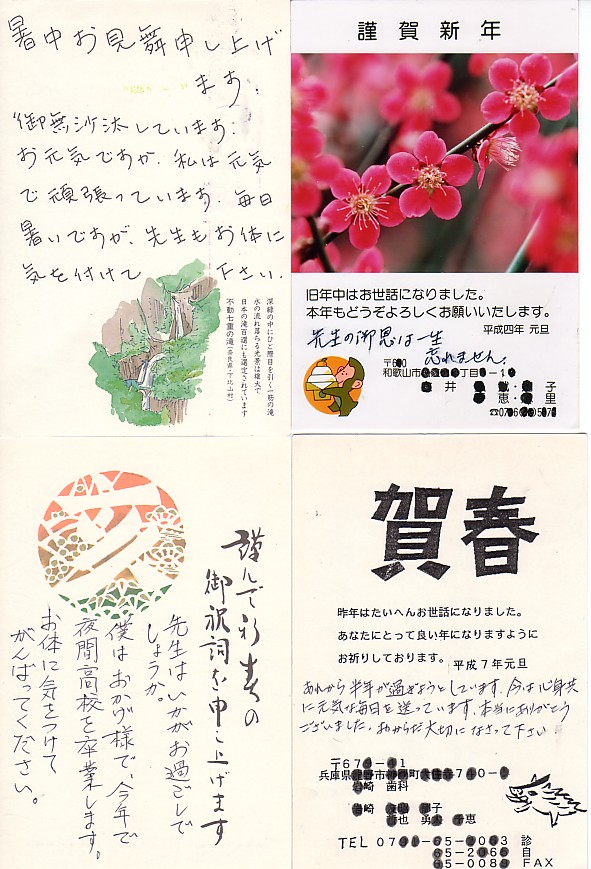 暑中お見舞申し上げ
ます.
御無沙汰しています.
お元気ですか. 私は元気
で頑張っています. 毎日
暑いですが、先生もお体に
気を付けて 下さい.
深緑の中にひと際目を引く一筋の滝
水の流れ落ちる光景は雄大で
日本の滝百選にも選定されています
不動七重の滝(奈良県・下北山村)
謹賀新年
旧年中はお世話になりました。
本年もどうぞよろしくお願いいたします。
平成四年 元旦
先生の御恩は一生
忘れません.
和歌山市 丁目
井 子
恵 里
謹んで新春の
御祝詞を申し上げます
先生はいかがお過ごしで
しょうか。
僕はおかげ様で、今年で
夜間高校を卒業します。
お体に気をつけて
がんばってください。
賀春
昨年はたいへんお世話になりました。
あなたにとって良い年になりますように
お祈りしております。
平成7年元旦
あれから半年が過ぎようとしています. 今は心身共
に元気な毎日を送っています. 本当にありがとう
ございました. おからだ大切になさって下さい
兵庫県 野市
岩崎 歯科
岩崎
千恵
TEL 診
自
FAX